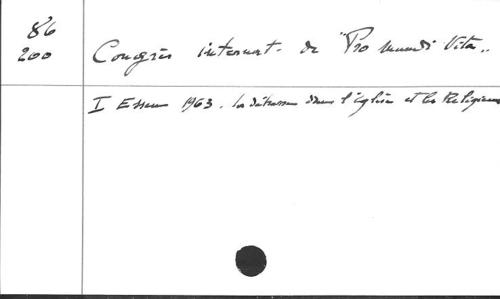 86
200
Congrès internat. de "Pro Mundi Vita"
I Essen 1963. La détresse dans l'Eglise et les Religieuses